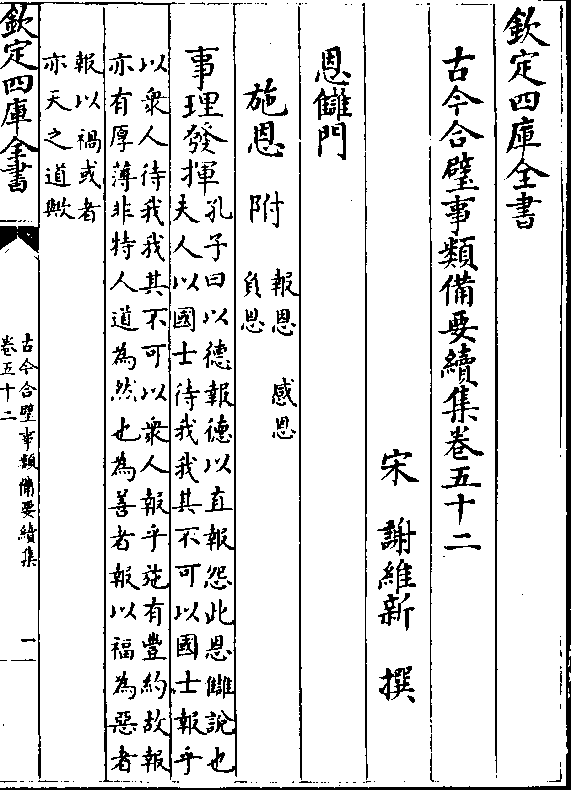 欽定四庫全書
古今合璧事類備要續集卷五十二
宋 謝維新 撰
恩讎門
施恩 附 報恩 感恩
負恩
事理發揮 孔子曰以德報德以直報怨此恩讎說也
夫人以國士待我我其不可以國士報乎
以衆人待我我其不可以衆人報乎施有豐約故報
亦有厚薄非特人道為然也為善者報以福為惡者
報以禍或者
亦天之道歟
欽定四庫全書
古今合璧事類備要續集
卷五十二
一